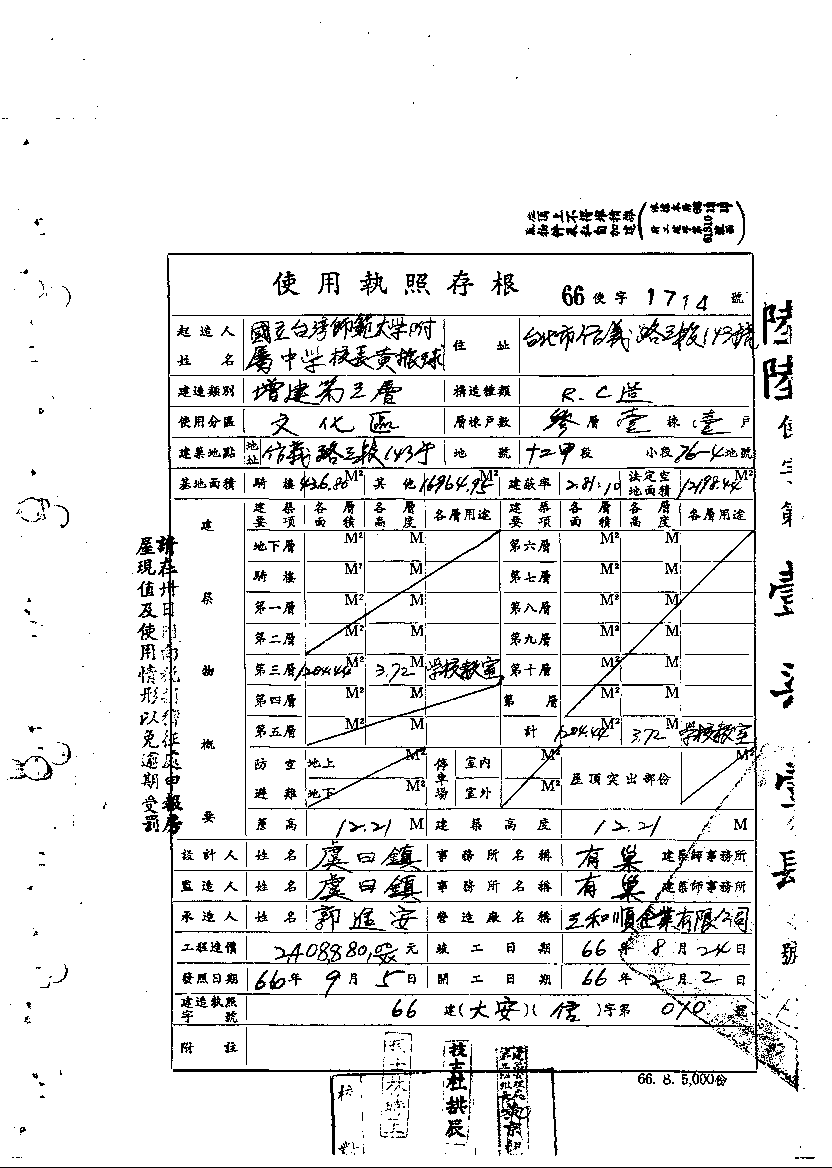 使用執照存根
66 使字 1714 號
起造人姓名 國立台灣師範大學附屬中学校長黃振球 住址 台北市信義路三段143號
建造類別 增建第三層 構造種類 R.C造
使用分區 文化區 層棟戶數 參層壹棟壹戶
建築地點 地址 信義路三段143号 地號 十二甲段 小段 76-4地號
基地面積 騎樓 436.80 M² 其他 16964.95 M² 建蔽率 2.81:10 法定空地面積 12198.44 M²
建築物概要
建築要項 各層面積 各層高度 各層用途 建築要項 各層面積 各層高度 各層用途
地下層 M² M 第六層 M² M
騎樓 M² M 第七層 M² M
第一層 M² M 第八層 M² M
第二層 M² M 第九層 M² M
第三層 1204.44 M² 3.72 M 学校教室 第十層 M² M
第四層 M² M 第 層 M² M
第五層 M² M 計 1204.44 M² 3.72 M 学校教室
防空避難 地上 M² 停車場 室內 M² 屋頂突出部份 M²
地下 M² 室外 M²
簷高 12.21 M 建築高度 12.21 M
設計人 姓名 虞曰鎮 事務所名稱 有巢 建築師事務所
監造人 姓名 虞曰鎮 事務所名稱 有巢 建築師事務所
承造人 姓名 郭進安 營造廠名稱 三和順企業有限公司
工程造價 2408880.00元 竣工日期 66年8月24日
發照日期 66年9月5日 開工日期 66年2月2日
建造執照字號 66 建(大安)(信)字第 010 號
附註
66. 8. 5,000份
屋現值及使用情形以免逾期受罰
技士杜拱辰
核對